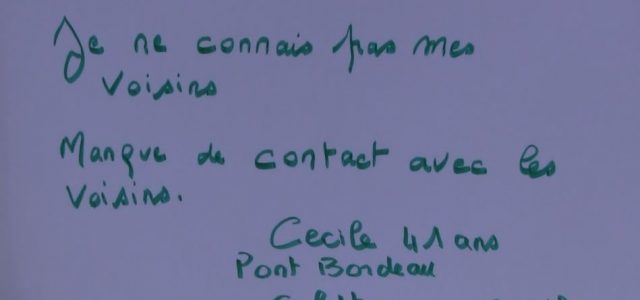 Je ne connais pas mes
voisins
Manque de contact avec les
voisins.
Cecile 41 ans
Pont Bordeau